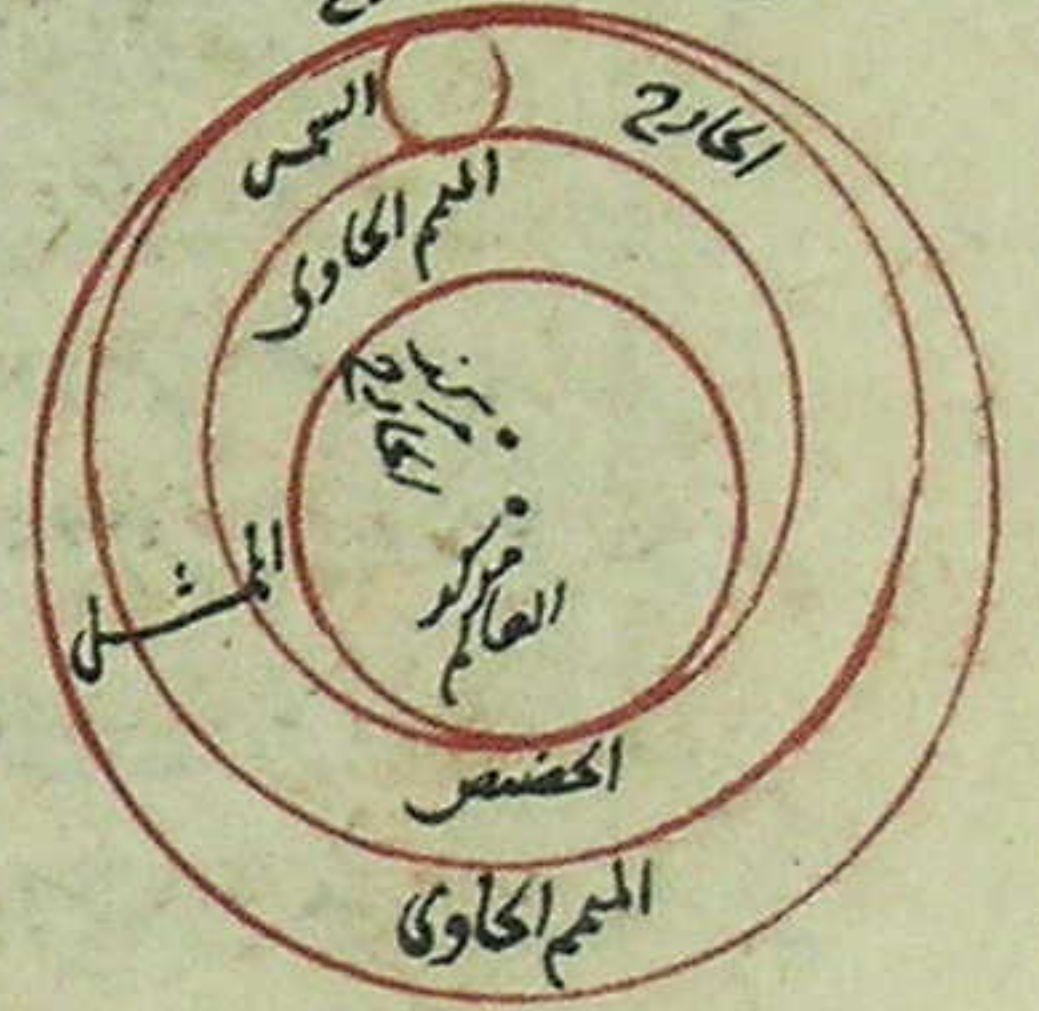 السمس
الخارج
المتمم الحاوى
مركز
الخارج
مركز
العالم
الممثل
الحضيض
المتمم الحاوى